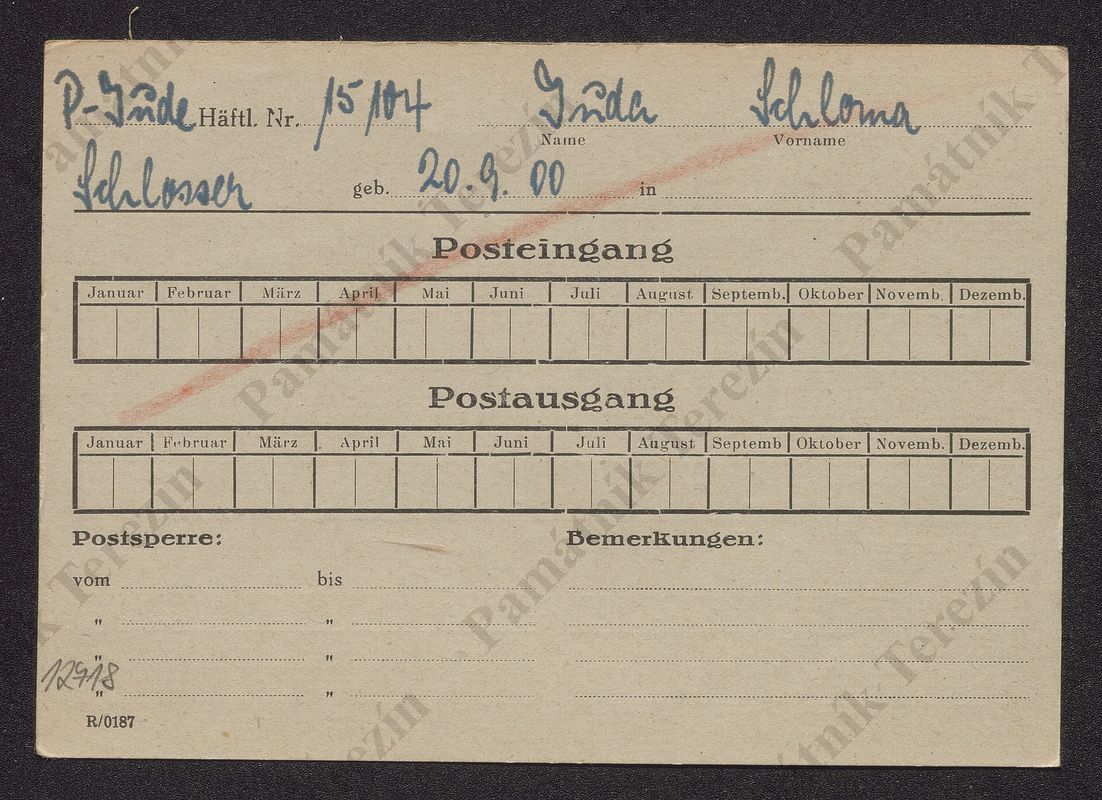 P-Jude Häftl. Nr. 15104 Juda Schloma
Name Vorname
Schlosser geb. 20.9.00 in
Posteingang
Januar Februar März April Mai Juni Juli August Septemb. Oktober Novemb. Dezemb.
Postausgang
Januar Februar März April Mai Juni Juli August Septemb Oktober Novemb. Dezemb.
Postsperre: Bemerkungen:
vom bis
" "
" "
12918
" "
R/0187
Památník Terezín